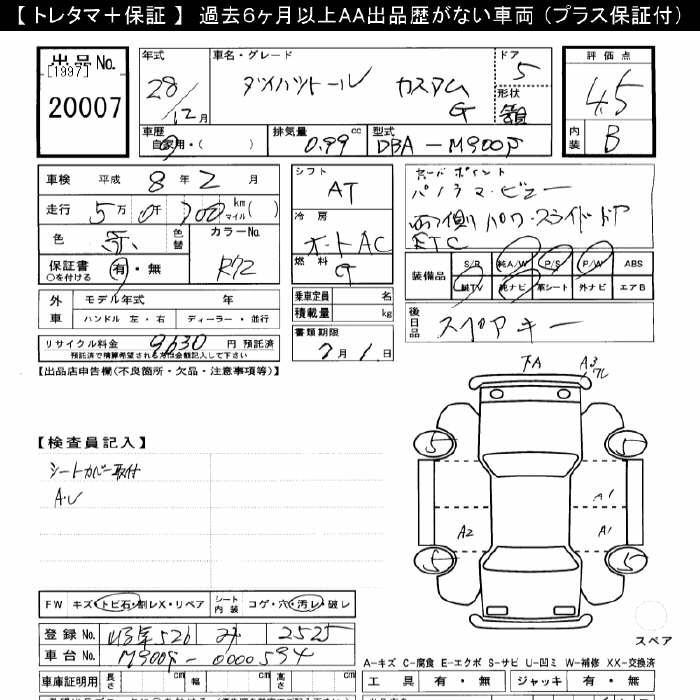 【 トレタマ＋保証 】 過去6ヶ月以上AA出品歴がない車両 （プラス保証付）
出品No.
[1997]
20007
年式
28/12月
車名・グレード
ダイハツトール カスタムG
ドア
5
形状
評価点
4.5
内装
B
車歴
自家用・( )
排気量
0.99 cc
型式
DBA - M900S
車検 平成 8 年 2 月
走行 5万 0千 700 km マイル ( )
色 赤 色替
カラーNo.
R72
保証書 ○を付ける 有・無
外車 モデル年式 年
ハンドル 左・右 ディーラー・並行
リサイクル料金 9630 円 預託済
預託済で精算希望される方は金額記入して下さい
シフト
AT
冷房
オートAC
燃料
G
乗車定員 名
積載量 kg
書類期限
2月1日
セールスポイント
パノラマ・ビュー
両側パワースライドドア
ETC
装備品 S/R 純A/W P/S P/W ABS
純TV 純ナビ 革シート 外ナビ エアB
後日品 スペアキー
【出品店申告欄(不良箇所・欠品・注意事項等)】
【検査員記入】
シートカバー取付
A・U
下A
A3
5 5
A1
A2 A1
5 5
FW キズ・トビ石・割レX・リペア シート内装 コゲ・穴・汚レ・破レ
登録No. 526 2525
車台No. M900S - 0000594
スペア
A-キズ C-腐食 E-エクボ S-サビ U-凹ミ W-補修 XX-交換済
車庫証明用 長さ 幅 高さ
工具 有・無 ジャッキ 有・無